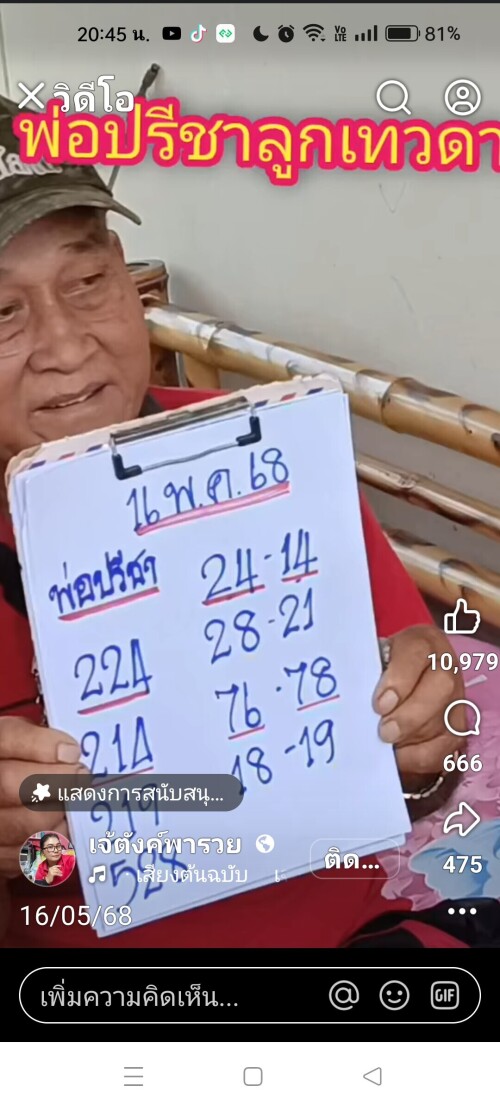 20:45 น.
81%
วิดีโอ
พ่อปรีชาลูกเทวดา
16 พ.ค. 68
พ่อปรีชา
24-14
28-21
224
76-78
214
18-19
219
แสดงการสนับสนุ...
เจ้ตังค์พารวย
ติด...
เสียงต้นฉบับ
16/05/68
10,979
666
475
เพิ่มความคิดเห็น...
GIF